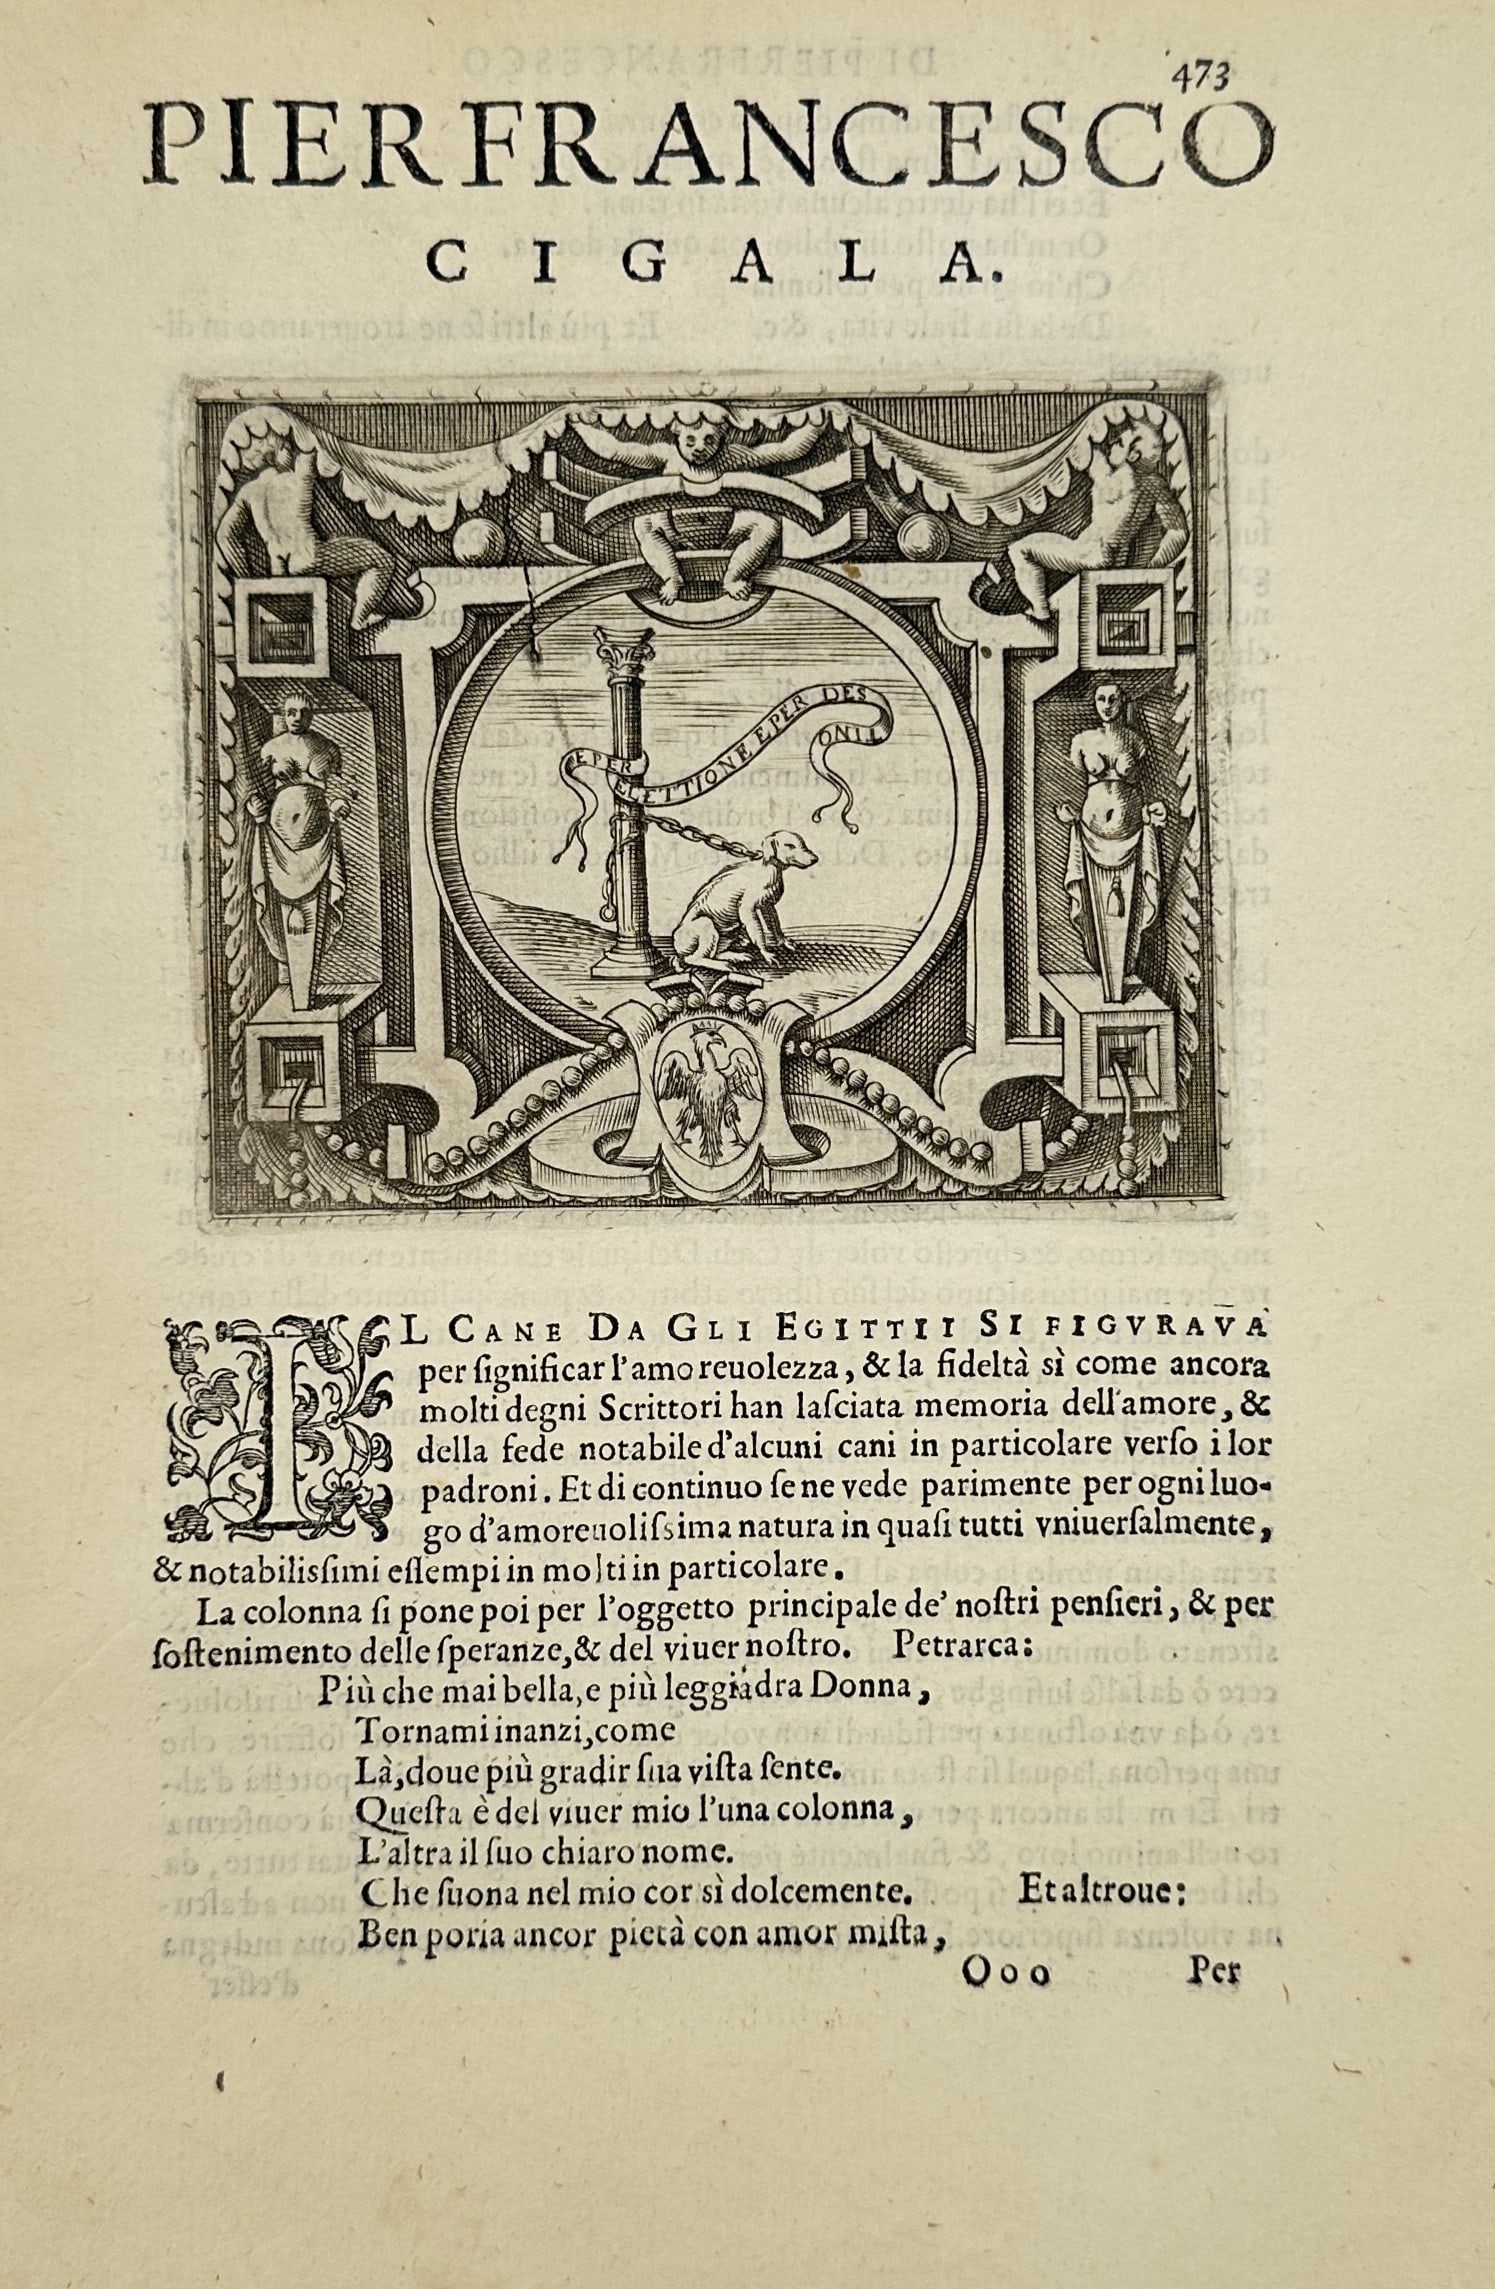 473
PIERFRANCESCO
CIGALA.
E PER ELETTIONE E PER DESTINO
IL CANE DA GLI EGITTII SI FIGVRAVA
per ſignificar l'amoreuolezza, & la fideltà sì come ancora
molti degni Scrittori han laſciata memoria dell'amore, &
della fede notabile d'alcuni cani in particolare verſo i lor
padroni. Et di continuo ſe ne vede parimente per ogni luo-
go d'amoreuoliſsima natura in quaſi tutti vniuerſalmente,
& notabiliſsimi eſſempi in molti in particolare.
La colonna ſi pone poi per l'oggetto principale de' noſtri penſieri, & per
ſoſtenimento delle ſperanze, & del viuer noſtro. Petrarca:
Più che mai bella, e più leggiadra Donna,
Tornami inanzi, come
Là, doue più gradir ſua viſta ſente.
Queſta è del viuer mio l'una colonna,
L'altra il ſuo chiaro nome.
Che ſuona nel mio cor sì dolcemente. Et altroue:
Ben poria ancor pietà con amor miſta,
Ooo Per